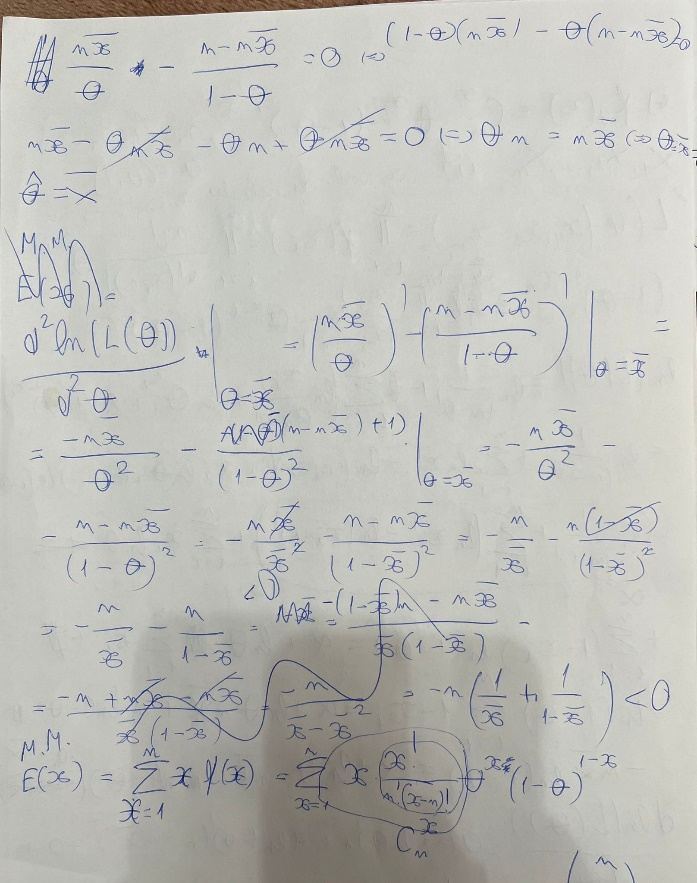 nx̄/θ - (n-nx̄)/(1-θ) = 0 ⇔ (1-θ)(nx̄) - θ(n-nx̄)=0
nx̄ - θnx̄ - θn + θnx̄ = 0 ⇔ θn = nx̄ ⇔ θ=x̄
θ̂ = x̄
M M
E(x) =
d²ln(L(θ))/d²θ |θ=x̄ = (nx̄/θ)' - ((n-nx̄)/(1-θ))' |θ=x̄ =
= -nx̄/θ² - ((n-nx̄)+1)/(1-θ)² · |θ=x̄ = - nx̄/θ² -
- (n-nx̄)/(1-θ)² = - nx̄/x̄² - (n-nx̄)/(1-x̄)² = - n/x̄ - n(1-x̄)/(1-x̄)²
<0
= - n/x̄ - n/(1-x̄) = = (-(1-x̄)n - nx̄)/(x̄(1-x̄)) -
= (-n + nx̄ - nx̄)/(x̄(1-x̄)) = -n/(x̄-x̄²) = -n(1/x̄ + 1/(1-x̄)) < 0
M.M.
E(x) = ∑ₓ₌₁ⁿ x f(x) = ∑ₓ₌₁ⁿ x · x!/(n!(x-n)!) θˣ (1-θ)¹⁻ˣ
Cₙˣ
(n)